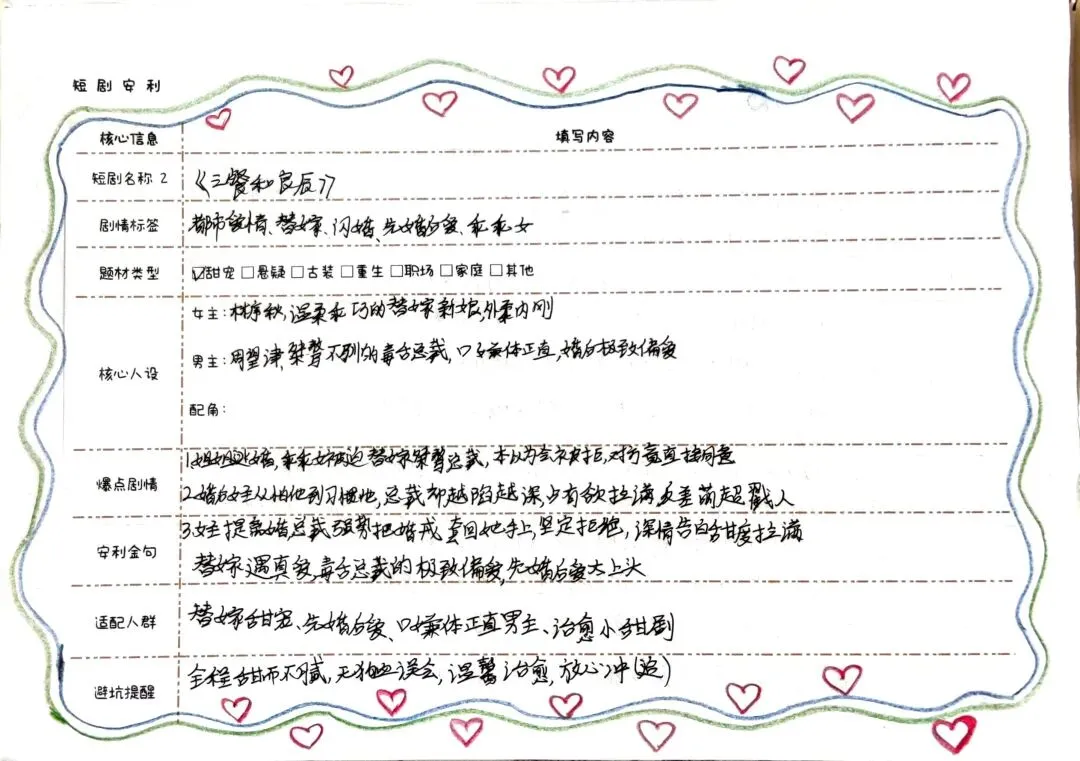 短剧安利
核心信息 填写内容
短剧名称 2 《三餐和良辰》
剧情标签 都市爱情、替嫁、闪婚、先婚后爱、乖乖女
题材类型 ☑甜宠 □悬疑 □古装 □重生 □职场 □家庭 □其他
核心人设
女主:林序秋,温柔乖巧的替嫁新娘,外柔内刚
男主:周望津,桀骜不驯的毒舌总裁,口嫌体正直,婚后极致偏爱
配角:
爆点剧情
1.姐姐逃婚,乖乖女被迫替嫁桀骜总裁,本以为会被拒,对方竟直接同意
2.婚后女主从怕他到习惯他,总裁却越陷越深,占有欲拉满,反差萌超戳人
3.女主提离婚,总裁强势把婚戒套回她手上,坚定拒绝,深情告白甜度拉满
安利金句 替嫁遇真爱,毒舌总裁的极致偏爱,先婚后爱太上头
适配人群 替嫁甜宠、先婚后爱、口嫌体正直男主、治愈小甜剧
避坑提醒 全程甜而不腻,无狗血误会,温馨治愈,放心冲(追)